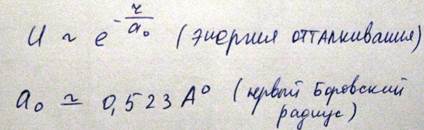 U ~ e^{-r/a₀} (энергия отталкивания)
a₀ ≃ 0,523 A⁰ (первый Боровский
радиус)